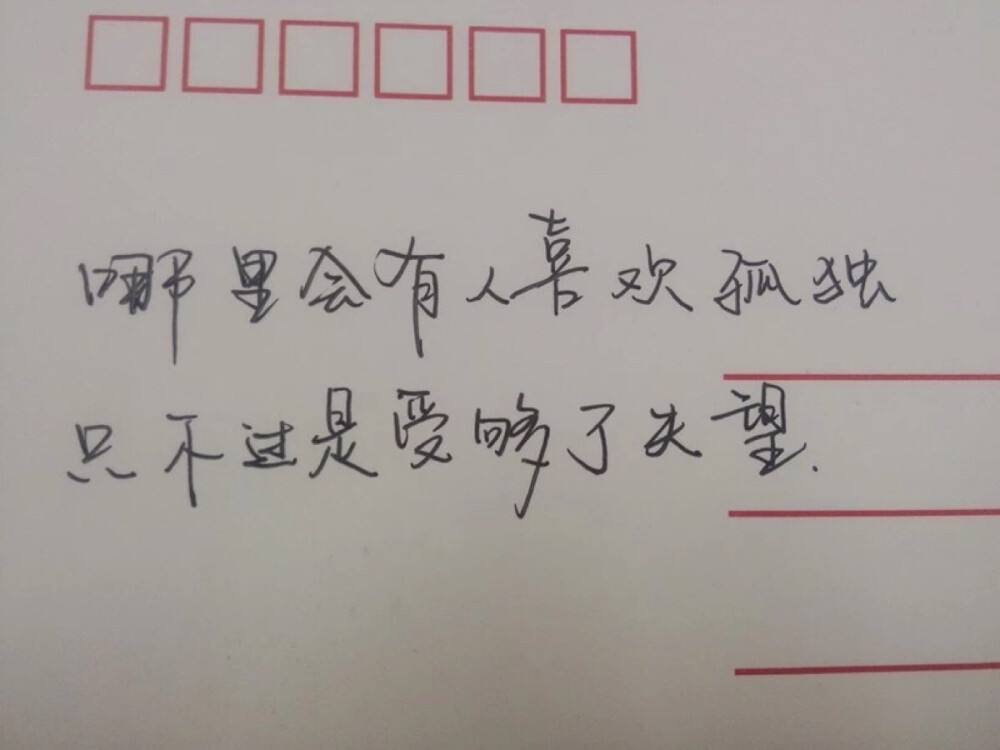 哪里会有人喜欢孤独
只不过是受够了失望.